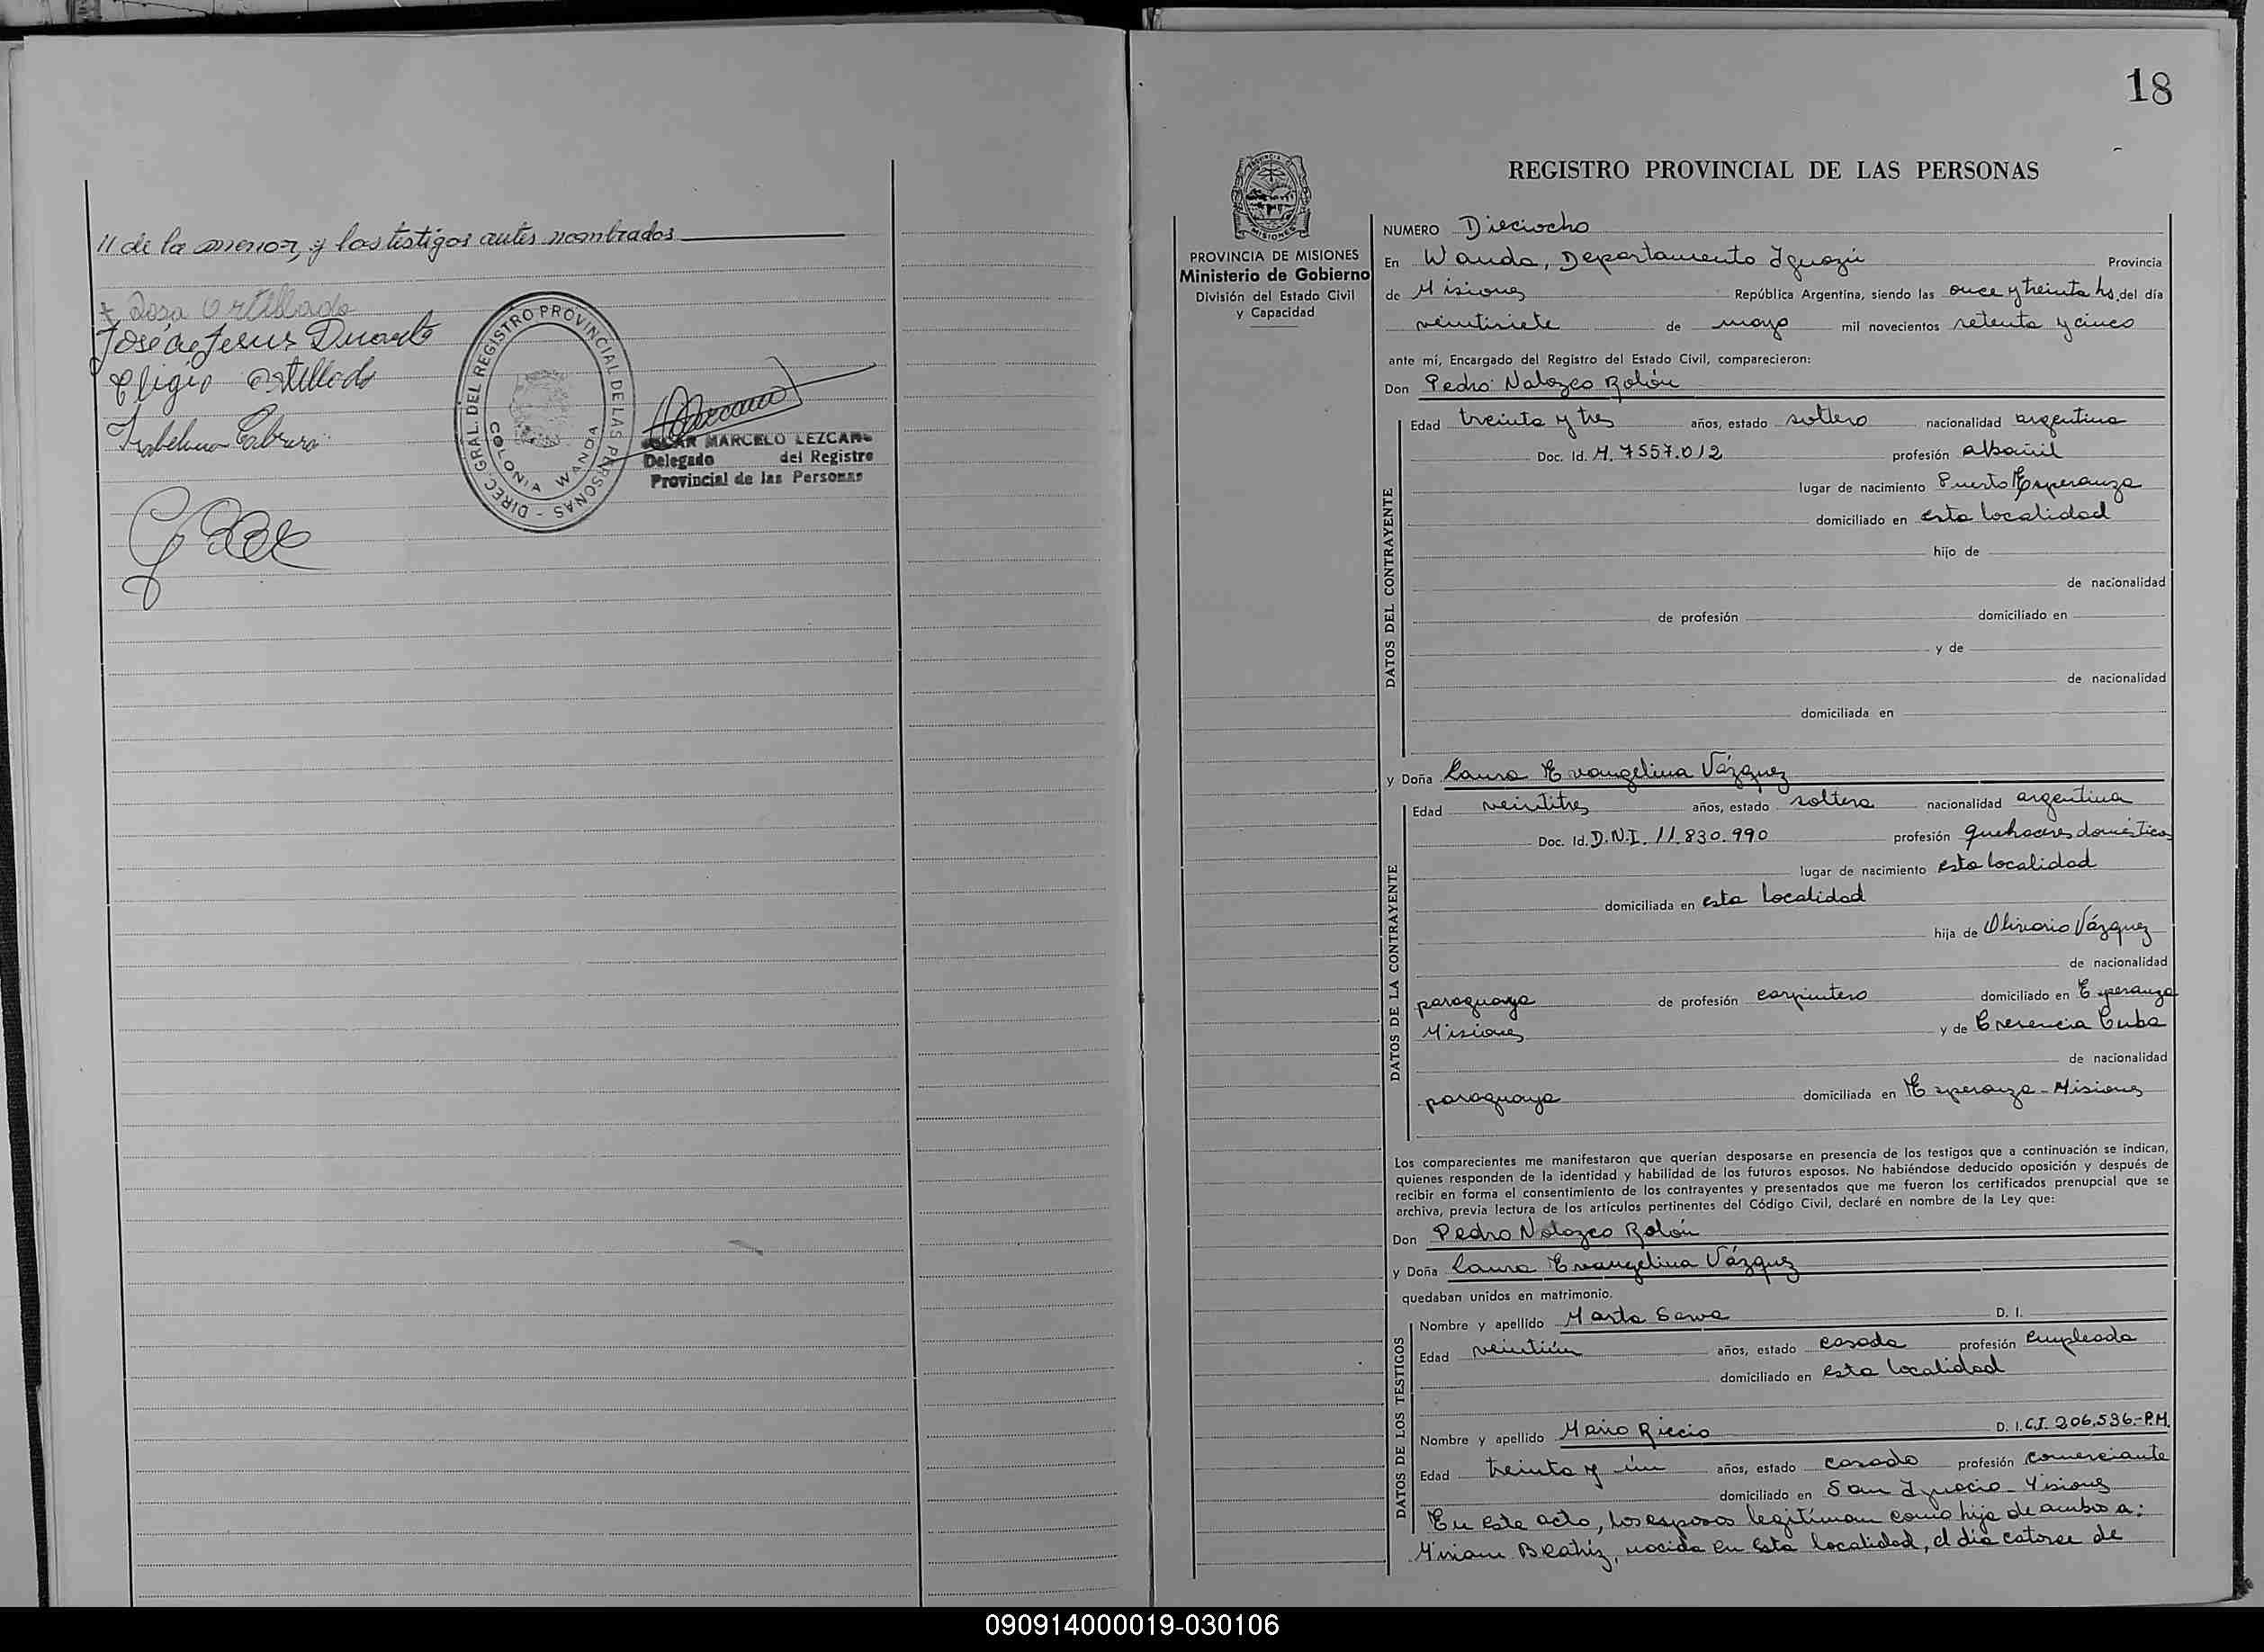 // de la menor, y los testigos antes nombrados
José de Jesus Duarte
Eligio
Cabrera
DIREC. GRAL. DEL REGISTRO PROVINCIAL DE LAS PERSONAS -
COLONIA WANDA
MARCELO LEZCANO
Delegado del Registro
Provincial de las Personas
18
REGISTRO PROVINCIAL DE LAS PERSONAS
PROVINCIA DE MISIONES
Ministerio de Gobierno
División del Estado Civil
y Capacidad
NUMERO Dieciocho
En Wanda, Departamento Iguazú Provincia
de Misiones República Argentina, siendo las once y treinta hs. del día
veintisiete de mayo mil novecientos setenta y cinco
ante mí, Encargado del Registro del Estado Civil, comparecieron:
Don Pedro Nolazco Rolón
DATOS DEL CONTRAYENTE
Edad treinta y tres años, estado soltero nacionalidad argentina
Doc. Id. M. 7557.012 profesión albañil
lugar de nacimiento Puerto Esperanza
domiciliado en esta localidad
hijo de
de nacionalidad
de profesión domiciliado en
y de
de nacionalidad
domiciliada en
y Doña Laura Evangelina Vázquez
DATOS DE LA CONTRAYENTE
Edad veintitres años, estado soltera nacionalidad argentina
Doc. Id. D.N.I. 11.830.990 profesión quehaceres domésticos
lugar de nacimiento esta localidad
domiciliada en esta localidad
hija de Vázquez
de nacionalidad
paraguaya de profesión carpintero domiciliado en Esperanza
Misiones y de Cuba
de nacionalidad
paraguaya domiciliada en Esperanza - Misiones
Los comparecientes me manifestaron que querían desposarse en presencia de los testigos que a continuación se indican,
quienes responden de la identidad y habilidad de los futuros esposos. No habiéndose deducido oposición y después de
recibir en forma el consentimiento de los contrayentes y presentados que me fueron los certificados prenupcial que se
archiva, previa lectura de los artículos pertinentes del Código Civil, declaré en nombre de la Ley que:
Don Pedro Nolazco Rolón
y Doña Laura Evangelina Vázquez
quedaban unidos en matrimonio.
DATOS DE LOS TESTIGOS
Nombre y apellido Marta D. I.
Edad veintiún años, estado casada profesión empleada
domiciliado en esta localidad
Nombre y apellido Mario Riccio D. I. C.I. 206.536.-P.M.
Edad treinta y un años, estado casado profesión comerciante
domiciliado en San Ignacio - Misiones
En este acto, los esposos legitiman como hija de ambos a:
Miriam Beatriz, nacida en esta localidad, el día catorce de
090914000019-030106